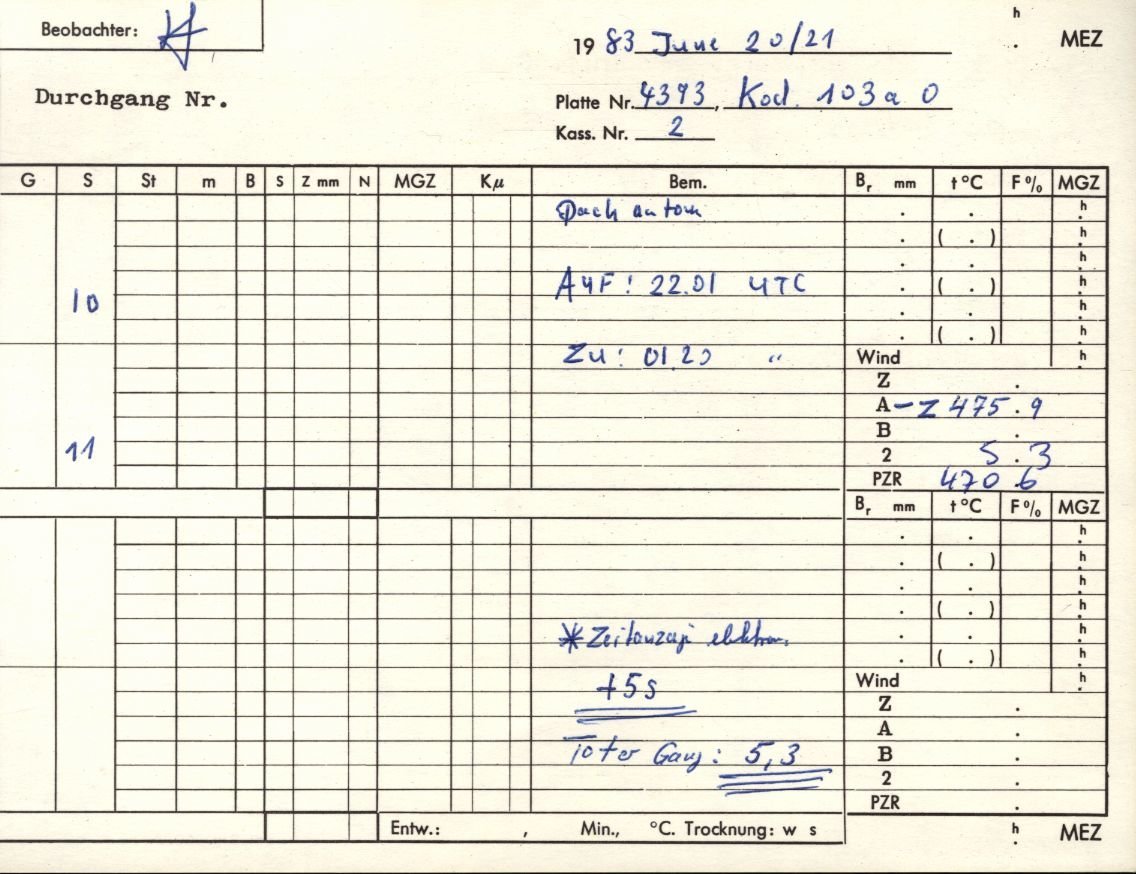 Beobachter:
h
1983 June 20/21 . MEZ
Durchgang Nr.
Platte Nr. 4393, Kod. 103a O
Kass. Nr. 2
G S St m B S Z mm N MGZ Kµ Bem. Br mm t°C F% MGZ
Dach autom . . h
. ( . ) .
. . h
10 Auf: 22.01 UTC . ( . ) h
. . h
. ( . )
Zu: 01.20 " Wind h
Z .
A-Z 475.9
B .
11 2 5.3
PZR 470.6
Br mm t°C F% MGZ
. . h
. ( . ) .
. . h
. ( . ) h
* Zeitanzeige elektron. . . h
. ( . )
+5s Wind h
Z .
A
Toter Gang: 5,3 B .
2 .
PZR .
Entw.: , Min., °C. Trocknung: w s h
. MEZ